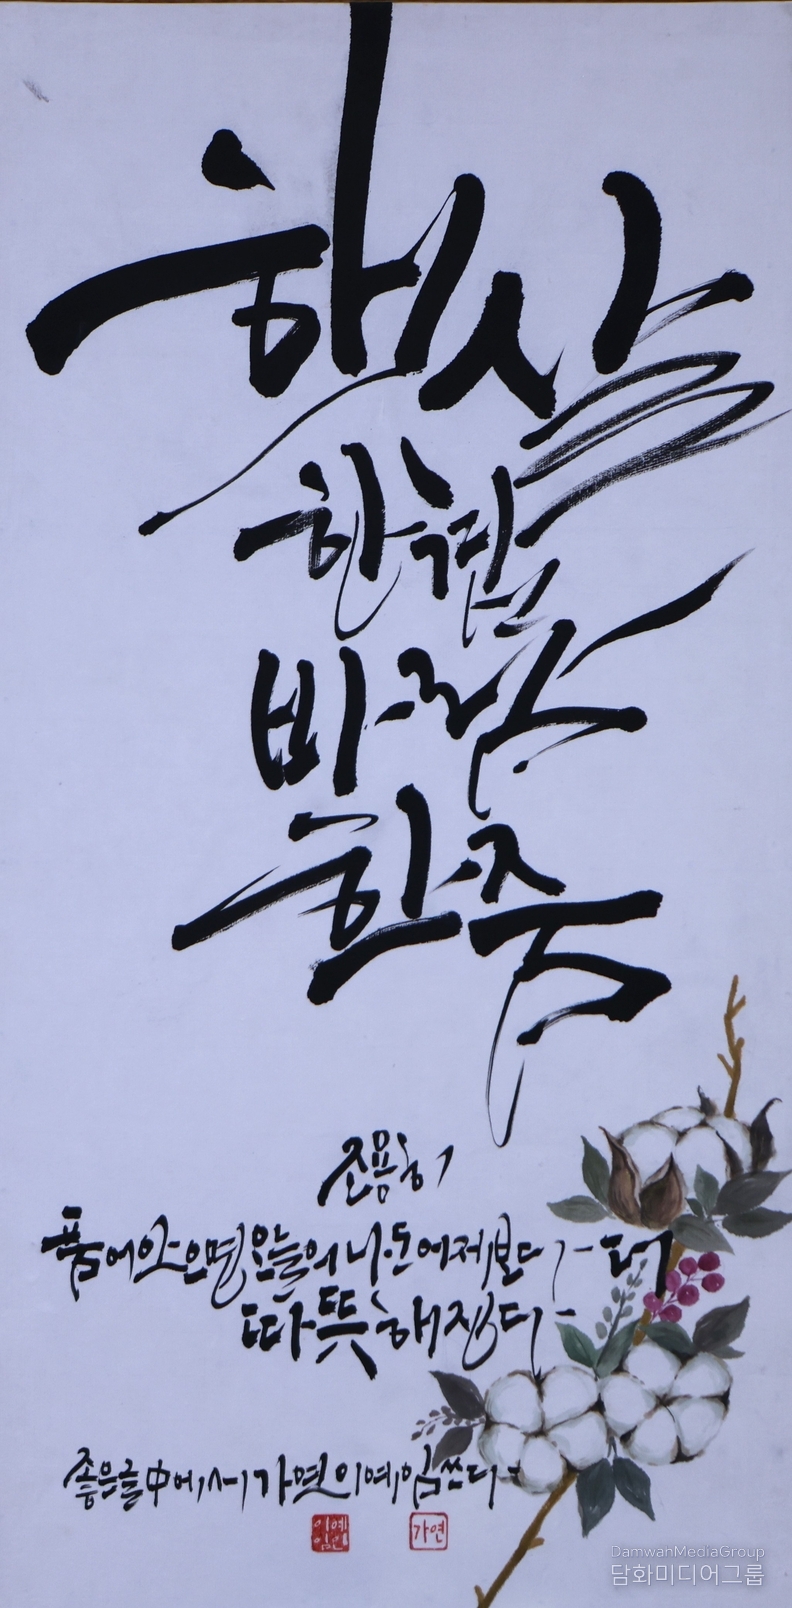 햇살
한 겹
바람
한 줌
조용히
품어 안으면 오늘의 나도 어제보다 더
따뜻해진다
좋은글 中에서 가연 이예임 쓰다
이예임
가연
DamwahMediaGroup
담화미디어그룹